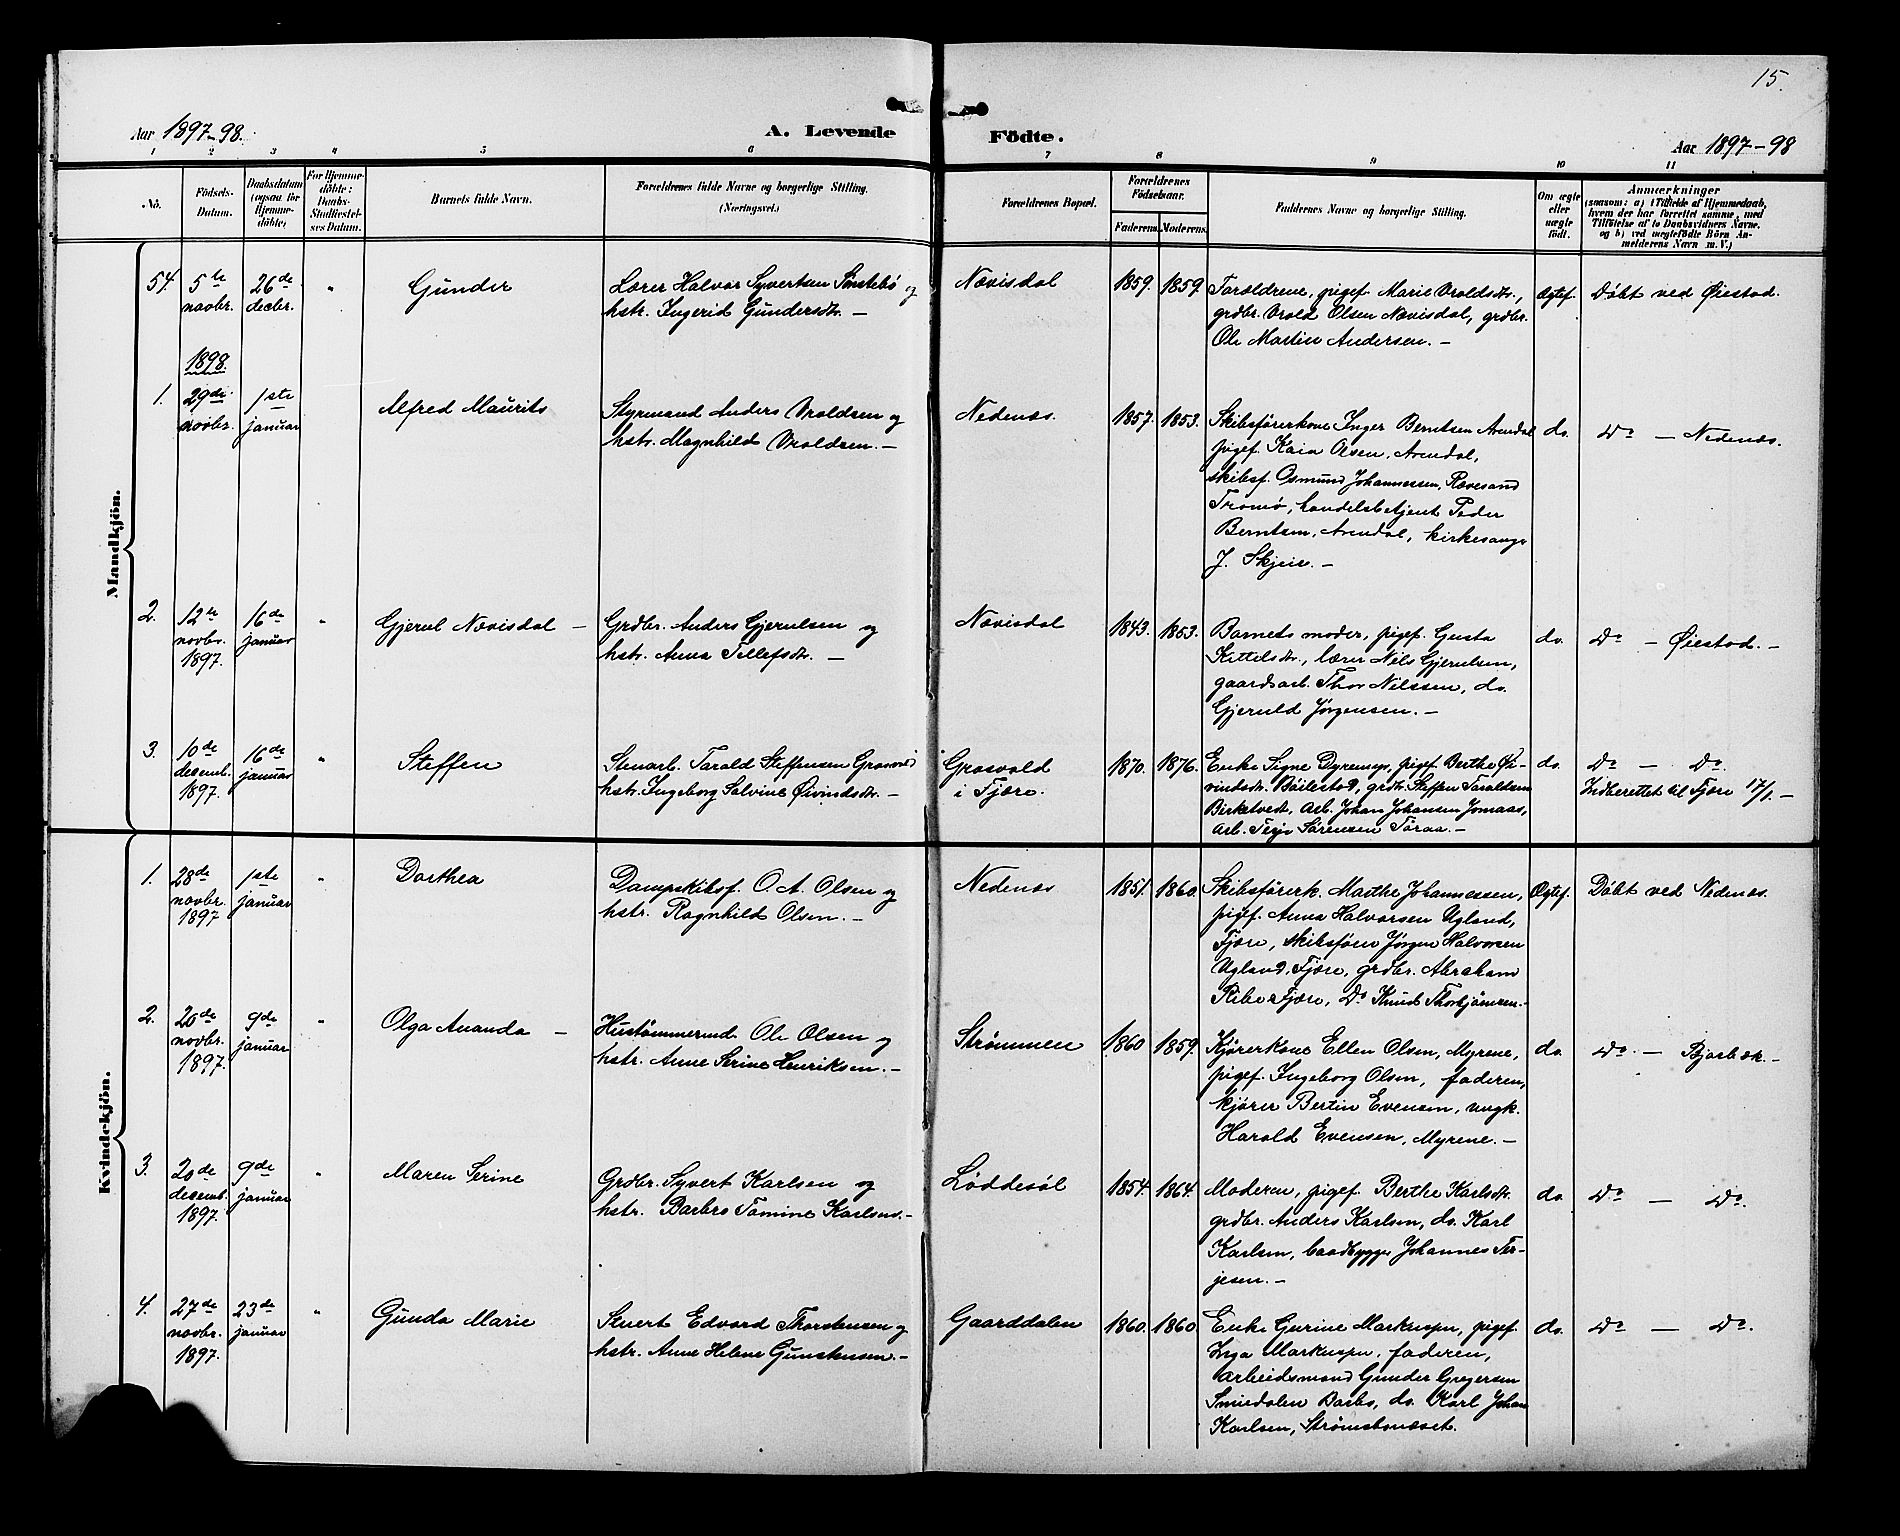 15.
Aar 1897-98.
A. Levende Födte.
Aar 1897-98
1 2 3 4 5 6 7 8 9 10 11
No.
Födsels-Datum.
Daabsdatum (ogsaa for Hjemme-döbte)
For Hjemme-döbte: Daabs-Stadfæstel-ses Datum.
Barnets fulde Navn.
Forældrenes fulde Navne og borgerlige Stilling. (Næringsvei.)
Forældrenes Bopæl.
Forældrenes Födselsaar.
Faderens. Moderens.
Faddernes Navne og borgerlige Stilling.
Om ægte eller uægte födt.
Anmærkninger (saasom: a) i Tilfælde af Hjemmedaab, hvem der har forrettet samme, med Tilföielse af to Daabsvidners Navne, og b) ved uægtefödte Börn An-melderens Navn m. V.)
Mandkjön.
54. 5te novbr. 26de decbr. " Gunder
Lærer Halvor Syvertsen Sønstebø og
hstr. Ingerid Gundersdtr. —
Nævisdal 1859. 1859.
Forældrene, pigef. Marie Vroldsdtr.,
grdbr. Vrold Olsen Nævisdal, grdbr.
Ole Martin Andersen. —
Ægtef. Døbt ved Øiestad.
1898.
1. 29de novbr. 1ste januar Alfred Maurits
Styrmand Anders Vroldsen og
hstr. Magnhild Vroldsen. —
Nedenæs. 1857. 1853.
Skibsførerkone Inger Berntsen Arendal
pigef. Kaia Olsen, Arendal,
skibsf. Osmund Johannessen, Rævesand
Tromø, handelsbetjent Peder
Berntsen, Arendal, kirkesanger
J. Skjeie. —
do. Do — Nedenæs.
2. 12te novbr. 1897. 16de januar " Gjerul Nævisdal —
Grdbr. Anders Gjerulsen og
hstr. Anna Tellefsdtr. —
Nævisdal 1843. 1853.
Barnets moder, pigef. Gusta
Kittelsdtr., lærer Nils Gjerulsen,
gaardsarb. Thor Nilssen, do.
Gjeruld Jørgensen. —
do. Do — Øiestad. —
3. 10de decemb. 1897. 16de januar " Steffen
Stenarb. Tarald Steffensen Grosvold
hstr. Ingeborg Salvine Øivindsdtr. —
Grosvold
i Fjære.
1870. 1876.
Enke Signe Dyremyr, pigef. Berthe Øi-
vindsdtr. Bøilestad, grdbr. Steffen Taraldsen
Birketvedt, arb. Johan Johansen Jomaas,
arb. Terje Sørensen Toraa. —
do. Do — Do.
Indberettet til Fjære 17/1. —
Kvindekjön.
1. 28de novbr. 1897 1ste januar " Dorthea
Dampskibsf. O. A. Olsen og
hstr. Ragnhild Olsen. —
Nedenæs 1851. 1860.
Skibsførerk. Marthe Johannessen,
pigef. Anna Halvorsen Ugland,
Fjære, skibsfører Jørgen Halvorsen
Ugland, Fjære, grdbr. Abraham
Ribe Fjære, Do Knud Thorbjørnsen. —
Ægtef. Døbt ved Nedenæs.
2. 20de novbr. 1897. 9de januar " Olga Amanda —
Hustømmermd Ole Olsen og
hstr. Anne Serine Henriksen. —
Strømmen 1860 1859.
Kjørerkone Ellen Olsen, Myrene,
pigef. Ingeborg Olsen, faderen,
kjører Bertin Evensen, ungk.
Harald Evensen, Myrene. —
do. Do — Bjorbæk. —
3. 20de decemb. 1897. 9de januar " Maren Serine
Grdbr. Syvert Karlsen og
hstr. Barbro Tomine Karlsens. —
Løddesøl 1854. 1864.
Moderen, pigef. Berthe Karlsdtr.
grdbr. Anders Karlsen, do. Karl
Karlsen, baadbygger Johannes Ter-
jesen. —
do. Do — Do.
4. 27de novbr. 1897. 23de januar " Gunda Marie
Stuert Edvard Thorstensen og
hstr. Anne Helene Gunstensen. —
Gaarddalen 1860. 1860.
Enke Gurine Markuspn, pigef.
Inga Markuspn, faderen,
arbeidsmand Gunder Gregersen
Smiedalen Barbo, do. Karl Johan
Karlsen, Strømsbonæsset.
do. Do — Do.